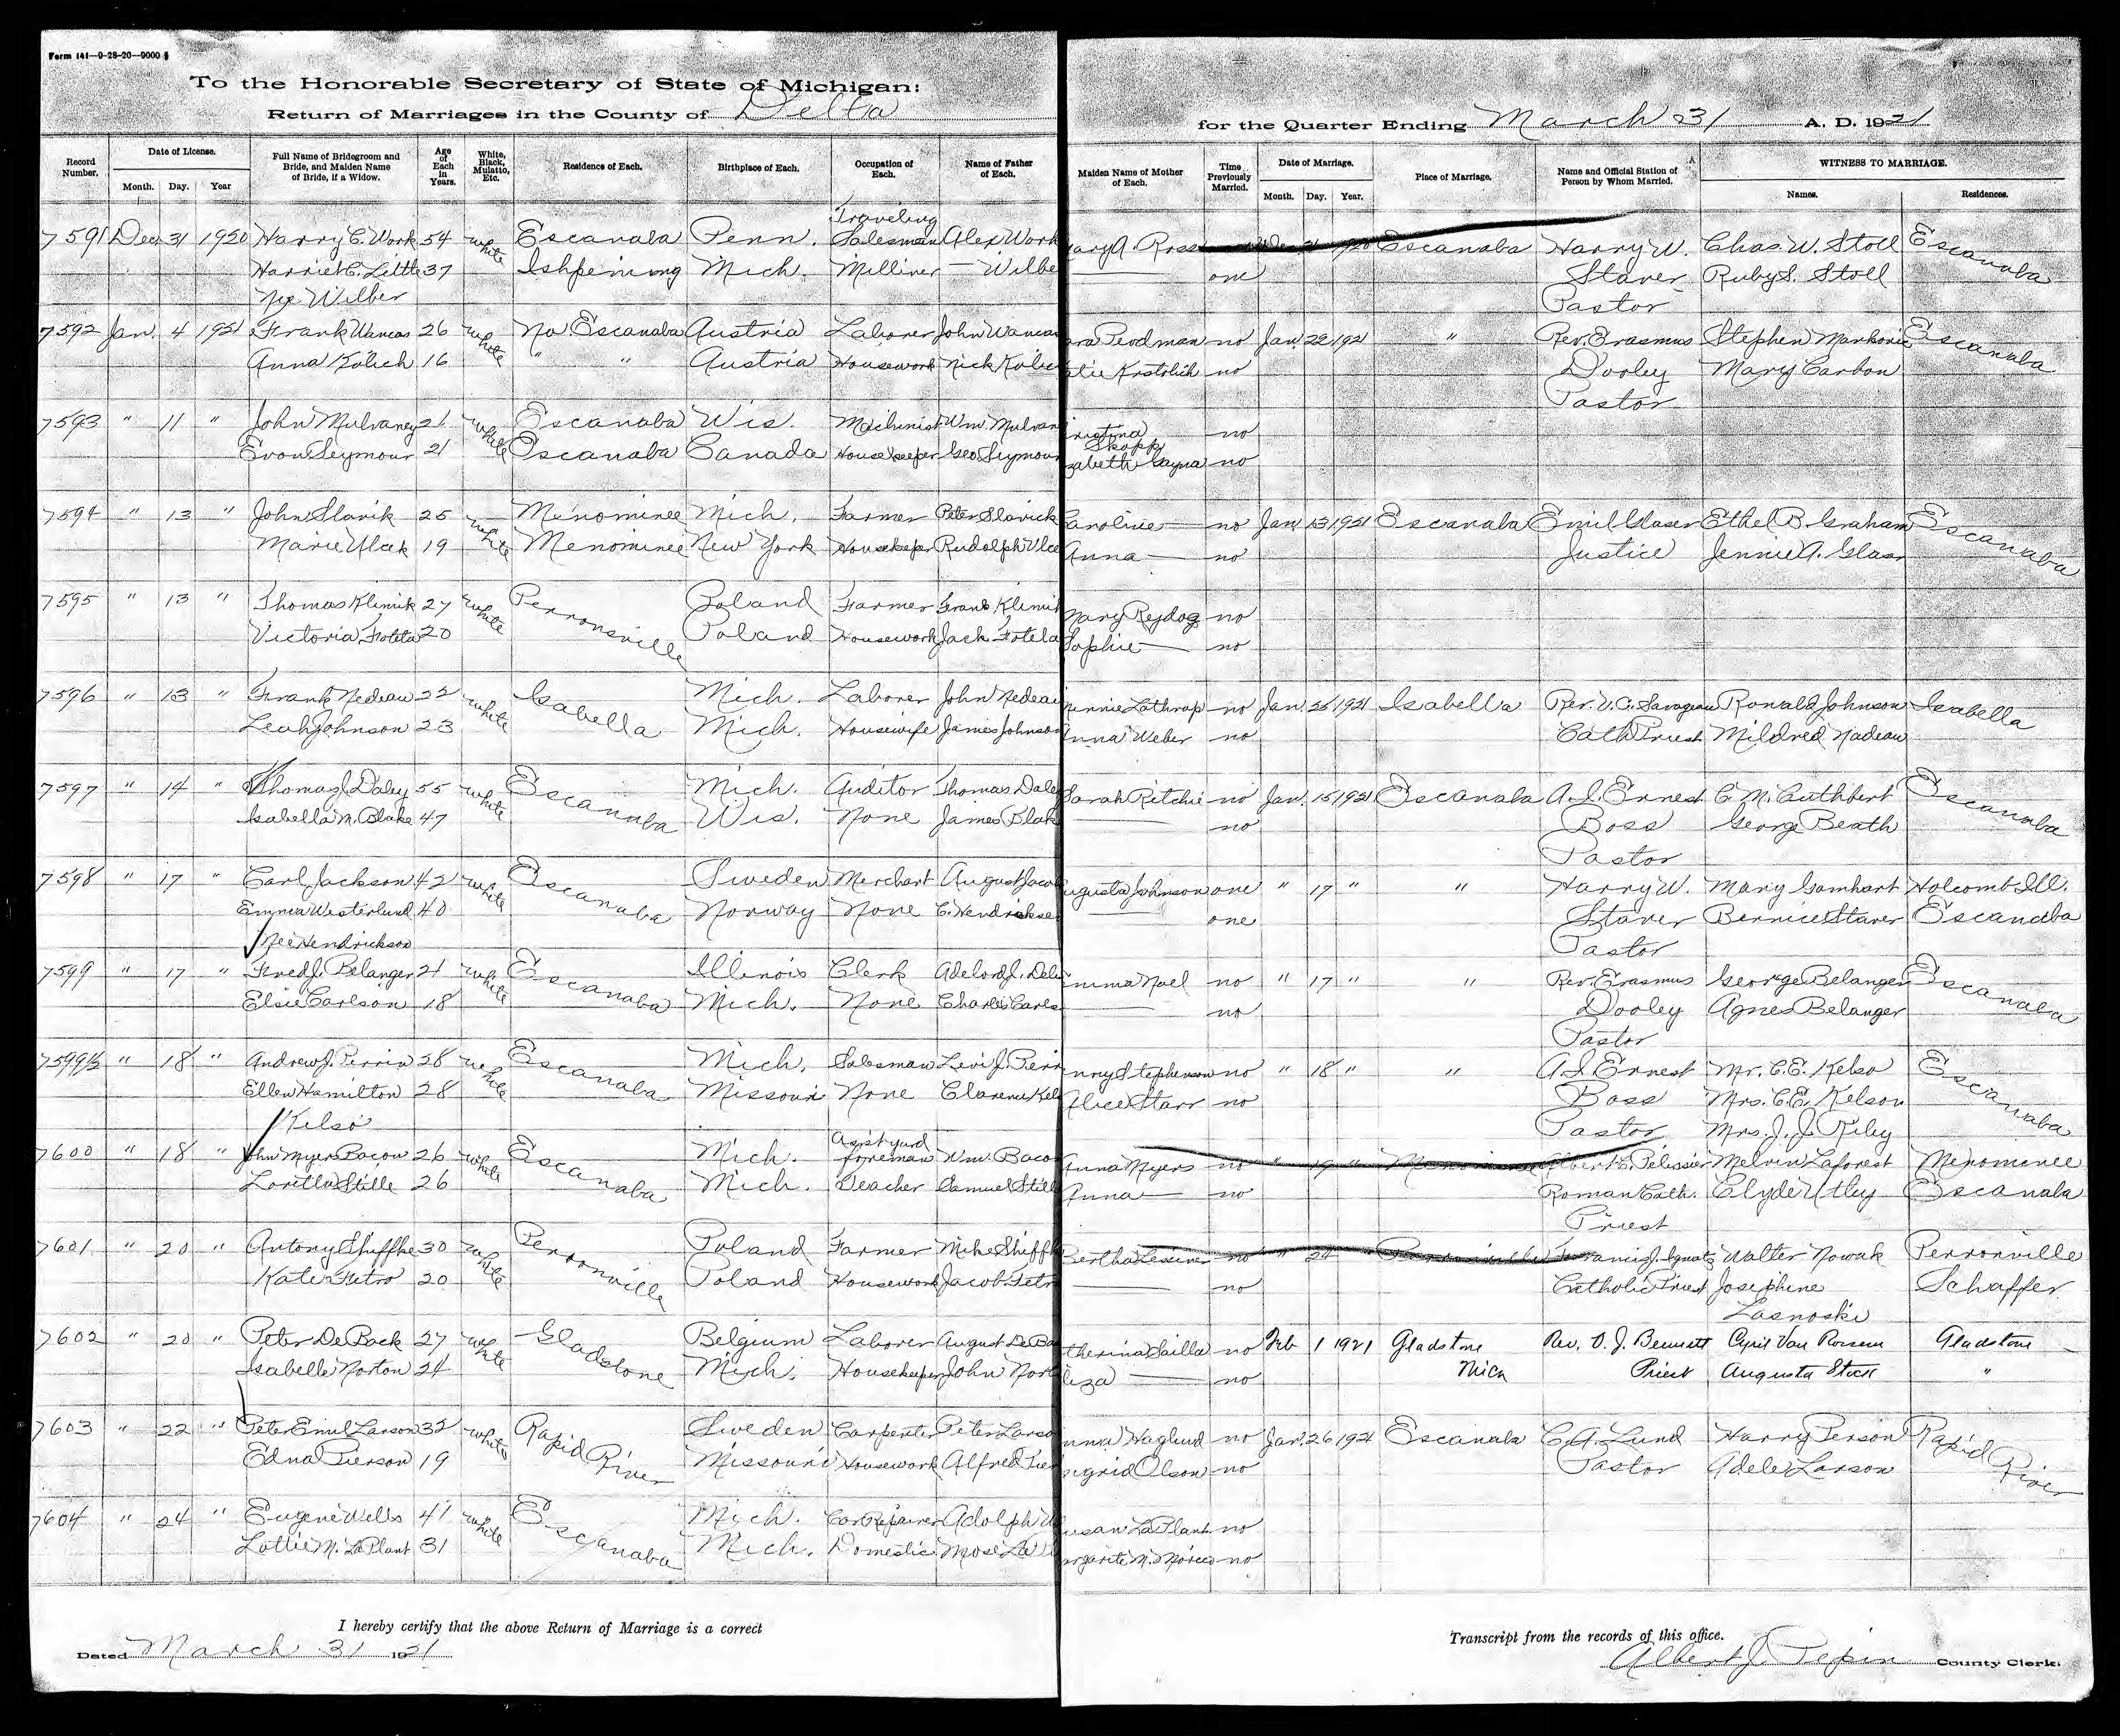 Form 141—9-28-20—9000
To the Honorable Secretary of State of Michigan:
Return of Marriages in the County of Delta
for the Quarter Ending March 31 A. D. 1921
Record Number. Date of License. Month. Day. Year Full Name of Bridegroom and Bride, and Maiden Name of Bride, if a Widow. Age of Each in Years. White, Black, Mulatto, Etc. Residence of Each. Birthplace of Each. Occupation of Each. Name of Father of Each. Maiden Name of Mother of Each. Time Previously Married. Date of Marriage. Month. Day. Year. Place of Marriage. Name and Official Station of Person by Whom Married. WITNESS TO MARRIAGE. Names. Residences.
7591 Dec 31 1920 Harry C. Work 54 White Escanaba Penn. Traveling Salesman Alex Work ary A. Ross 1920 Escanaba Harry W. Chas. W. Stoll Escanaba
Harriet C. Little 37 Ishpeming Mich. Milliner — Wilbe — one Staver Ruby S. Stoll
Nee Wilber Pastor
7592 Jan. 4 1921 Frank 26 White No Escanaba Austria Laborer John no Jan. 22 1921 " Rev. Erasmus Stephen Escanaba
Anna Kolich 16 " " Austria Housework Nick no Dooley Mary Carbon
Pastor
7593 " 11 " John Mulvaney 21 White Escanaba Wis. Machinist Wm. Mulvan no
Evon Seymour 21 Escanaba Canada Housekeeper Geo. Seymour zabeth no
7594 " 13 " John Slavik 25 White Menominee Mich. Farmer Peter Slavick Caroline — no Jan 13 1921 Escanaba Emil Glaser Ethel B. Graham Escanaba
Marie Vlcek 19 Menominee New York Housekeeper Rudolph Vlce Anna — no Justice Jennie A. Glaser
7595 " 13 " Thomas Klimik 27 White Perronville Poland Farmer Frank Klimik Mary no
Victoria Fotela 20 Poland Housework Jack Fotela Sophie — no
7596 " 13 " Frank Nedeau 22 White Isabella Mich. Laborer John Nedeau innie Lathrop no Jan. 26 1921 Isabella Rev. Ronald Johnson Isabella
Leah Johnson 23 Mich. Housewife James Johnson nna Weber no Cath Priest Mildred Nadeau
7597 " 14 " Thomas J. Daley 55 White Escanaba Mich. Auditor Thomas Dale Sarah Ritchie no Jan. 15 1921 Escanaba A. J. Ernest C. M. Cuthbert Escanaba
Isabella M. Blake 47 Wis. None James Blak — no Boss George Beath
Pastor
7598 " 17 " Carl Jackson 42 White Escanaba Sweden Merchant August Jaco ugusta Johnson one " 17 " " Harry W. Mary Gamhart Holcomb Ill.
Emma Westerlund 40 Norway None C. Hendrickse — one Staver Bernice Staver Escanaba
Nee Hendrickson Pastor
7599 " 17 " Fred J. Belanger 21 White Escanaba Illinois Clerk Adelord J. mma Noel no " 17 " " Rev. Erasmus George Belanger Escanaba
Elsie Carlson 18 Mich. None Charles Carls — no Dooley Agnes Belanger
Pastor
7599½ " 18 " Andrew J. Perrin 28 White Escanaba Mich. Salesman Levi J. Perr Stephenson no " 18 " " A. J. Ernest Mr. C. E. Kelso Escanaba
Ellen Hamilton 28 Missouri None Clarence Kel Alice Starr no Boss Mrs. C. E. Kelson
Kelso Pastor Mrs. J. J. Riley
7600 " 18 " John Myers Bacon 26 White Escanaba Mich. Ass't yard foreman Wm. Baco Anna Myers no " 19 " Menominee Albert C. Pelissier Melvin Laforest Menominee
Loretta Stille 26 Mich. Teacher Samuel Still Anna — no Roman Cath. Clyde Utley Escanaba
Priest
7601 " 20 " Antony Shiffke 30 White Perronville Poland Farmer Mike Shiffk Bertha no " 24 " Perronville Francis J. Walter Nowak Perronville
Kate Fetro 20 Poland Housework Jacob Fetr — no Catholic Priest Josephine Schaffer
Lasnoski
7602 " 20 " Peter DeBack 27 White Gladstone Belgium Laborer August DeBa therina no Feb 1 1921 Gladstone Rev. O. J. Bennett Cyril Van Gladstone
Isabelle Norton 24 Mich. Housekeeper John Nort liza — no Mich Priest Augusta Stock "
7603 " 22 " Peter Emil Larson 32 White Rapid River Sweden Carpenter Peter Larso nna Haglund no Jan. 26 1921 Escanaba C. A. Lund Harry Pierson Rapid River
Edna Pierson 19 Missouri Housework Alfred Pier ngrid Olson no Pastor Adele Larson
7604 " 24 " Eugene Wells 41 White Escanaba Mich. Car Repairer Adolph W usan LaPlant no
Lottie M. LaPlant 31 Mich. Domestic Mose La argarite M. no
I hereby certify that the above Return of Marriage is a correct Transcript from the records of this office.
Dated March 31 1921
Albert J. Pepin County Clerk.